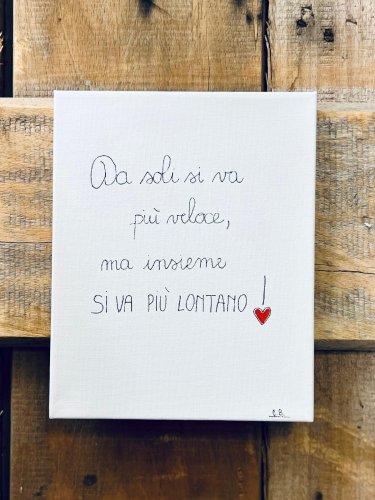 Da soli si va
più veloce,
ma insieme
SI VA PIÙ LONTANO!